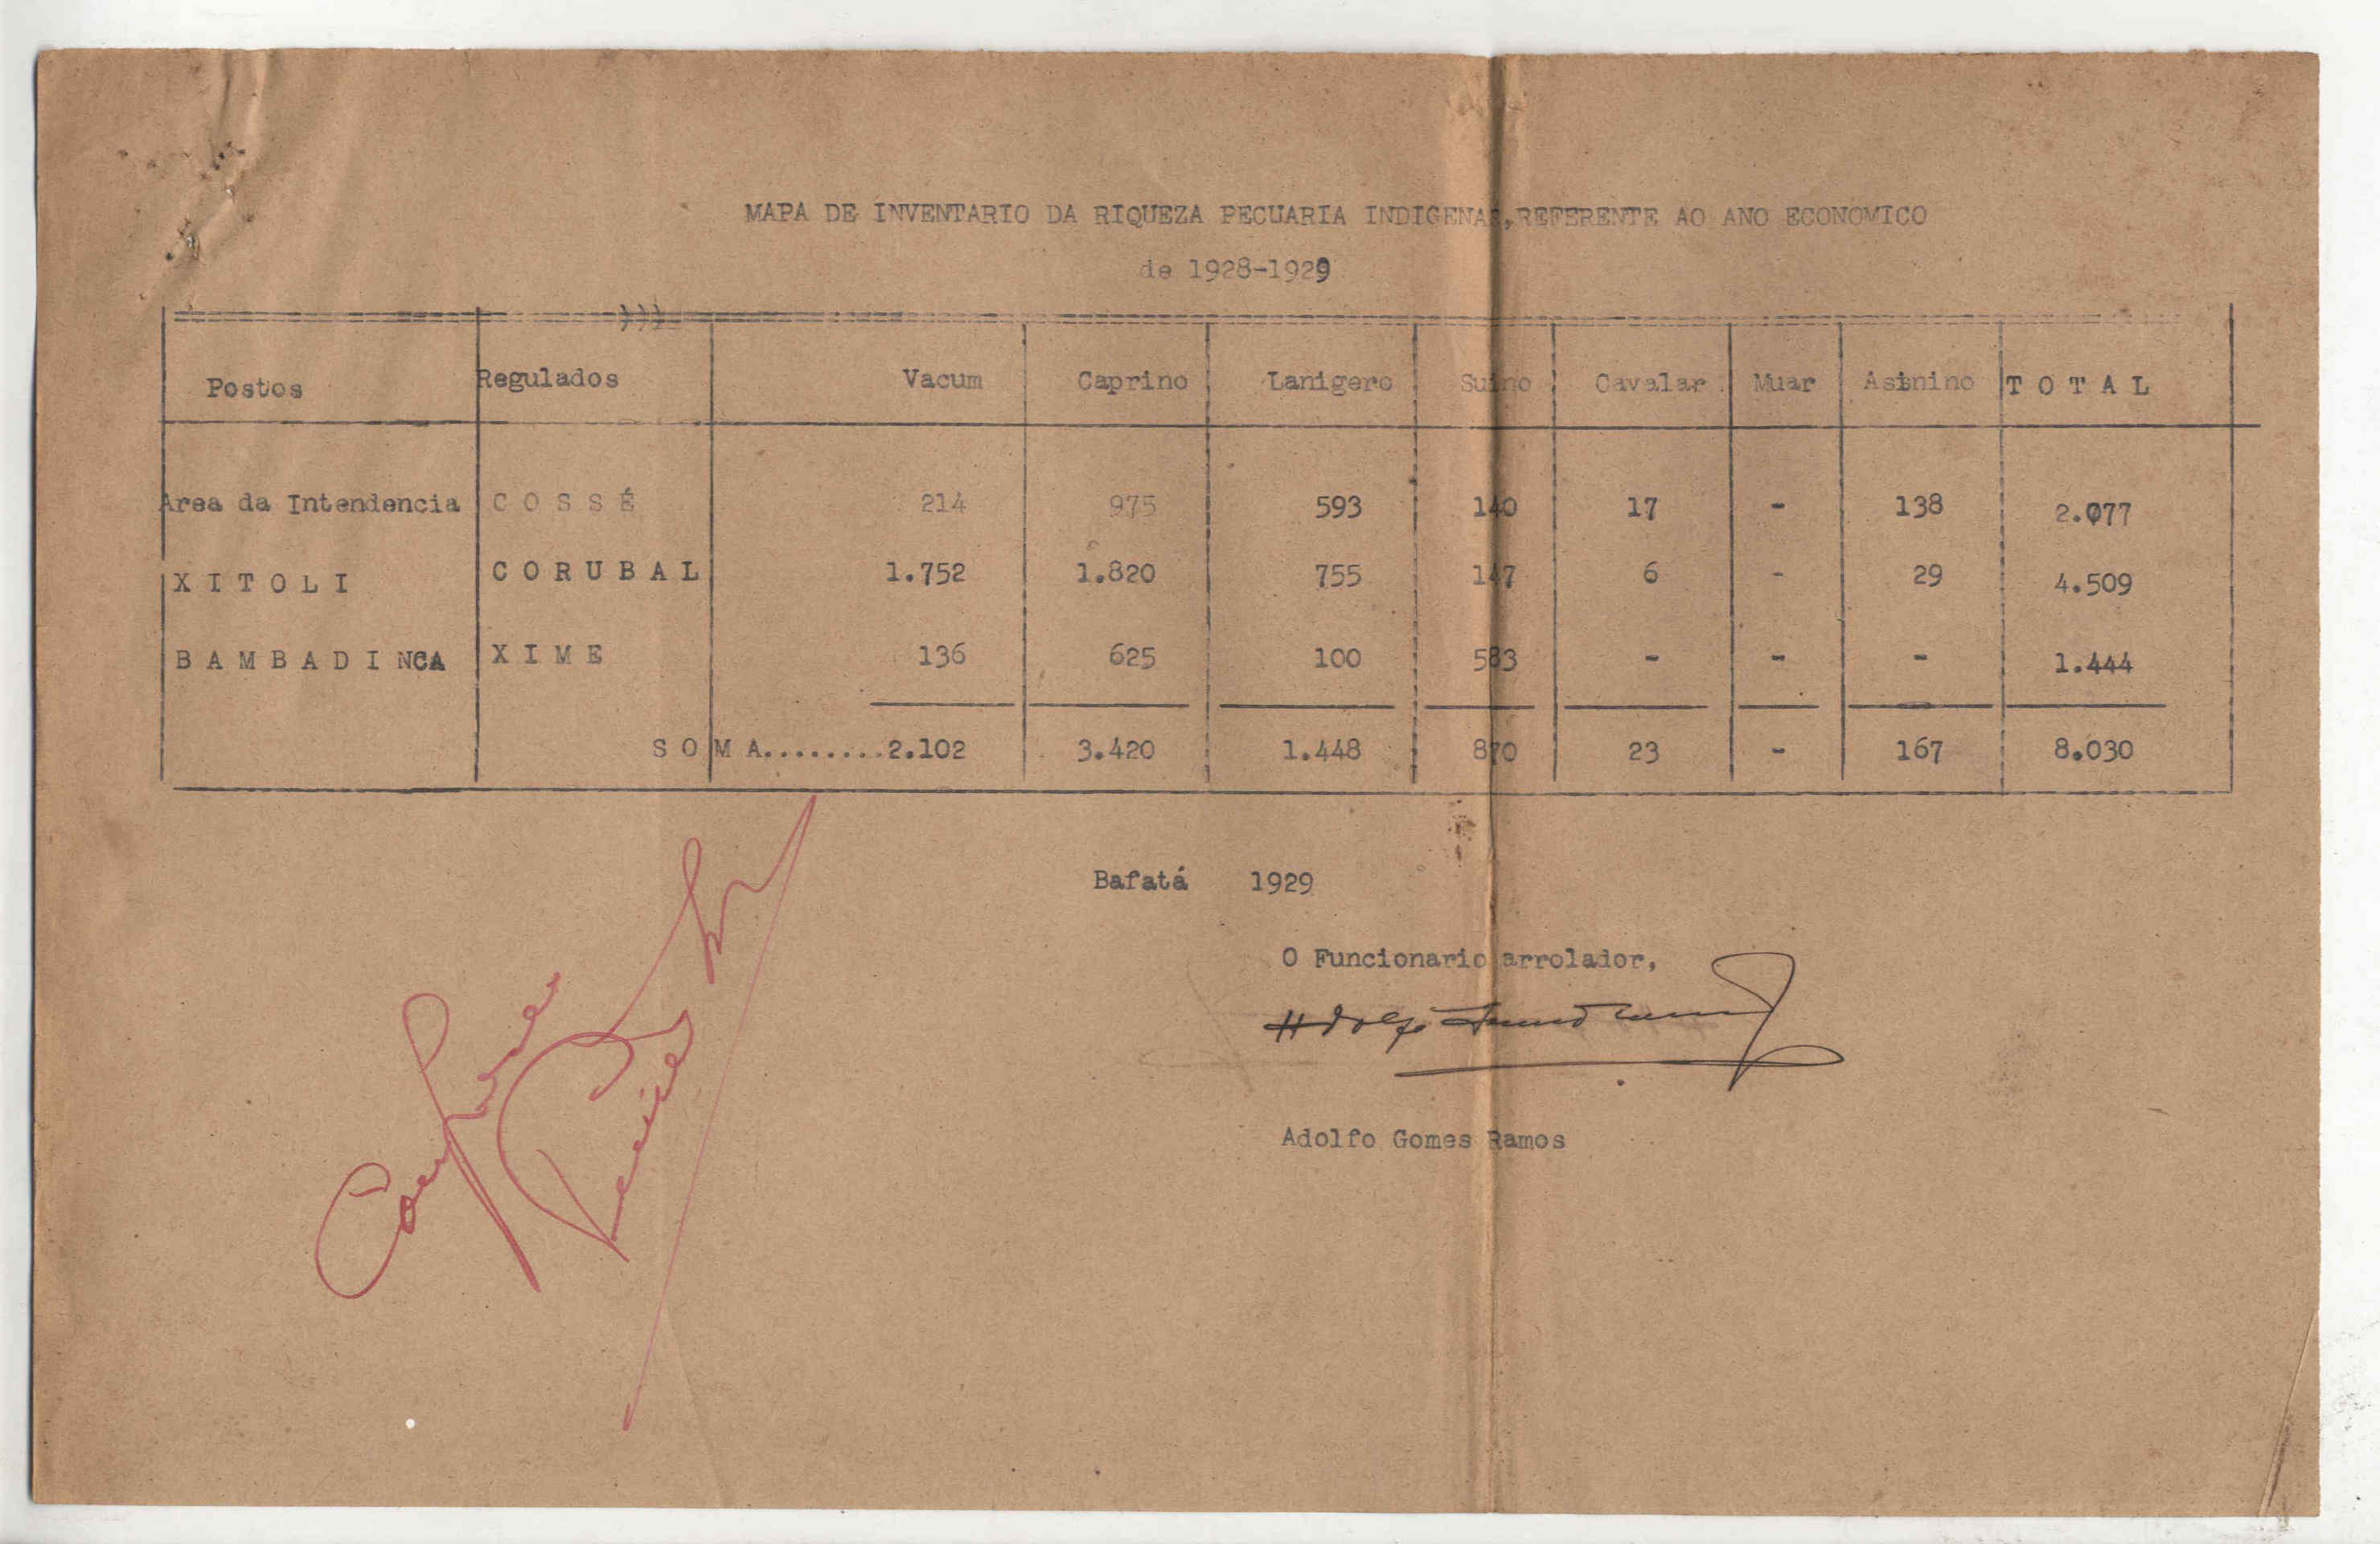 MAPA DE INVENTARIO DA RIQUEZA PECUARIA INDIGENAS, REFERENTE AO ANO ECONOMICO
de 1928-1929
Postos Regulados Vacum Caprino Lanigero Suino Cavalar Muar Asinino T O T A L
Area da Intendencia C O S S É 214 975 593 140 17 - 138 2.077
X I T O L I C O R U B A L 1.752 1.820 755 147 6 - 29 4.509
B A M B A D I N C A X I M E 136 625 100 583 - - - 1.444
S O M A........2.102 3.420 1.448 870 23 - 167 8.030
Bafatá 1929
O Funcionario arrolador,
Adolfo Gomes Ramos